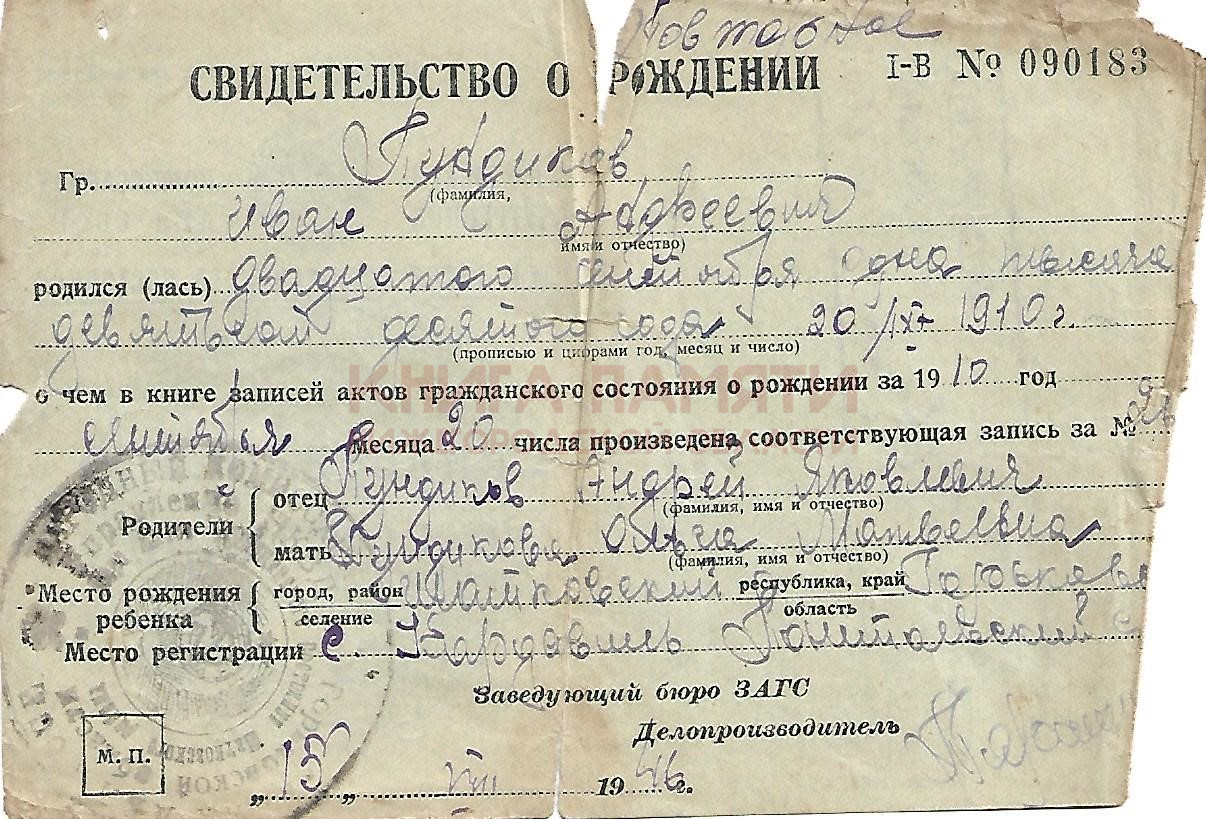 Повторное
СВИДЕТЕЛЬСТВО О РОЖДЕНИИ I-В № 090183
Гр. Пундиков
(фамилия,
Иван Андреевич
имя и отчество)
родился (лась) двадцатого сентября одна тысяча
девятьсот десятого года 20/IX 1910 г.
(прописью и цифрами год, месяц и число)
о чем в книге записей актов гражданского состояния о рождении за 1910 год
КНИГА ПАМЯТИ
сентября месяца 20 числа произведена соответствующая запись за №
Родители отец Пундиков Андрей Яковлевич
(фамилия, имя и отчество)
мать Пундикова Ольга Матвеевна
(фамилия, имя и отчество)
Место рождения ребенка город, район селение Шатковский республика, край область
Место регистрации с.
Заведующий бюро ЗАГС
Делопроизводитель
М. П.
„15„ VIII 1946 г.